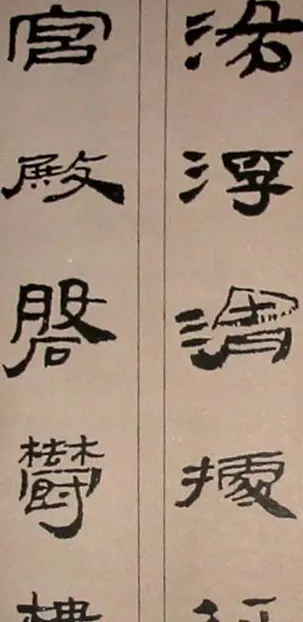 洛浮渭據
宮殿磐鬱